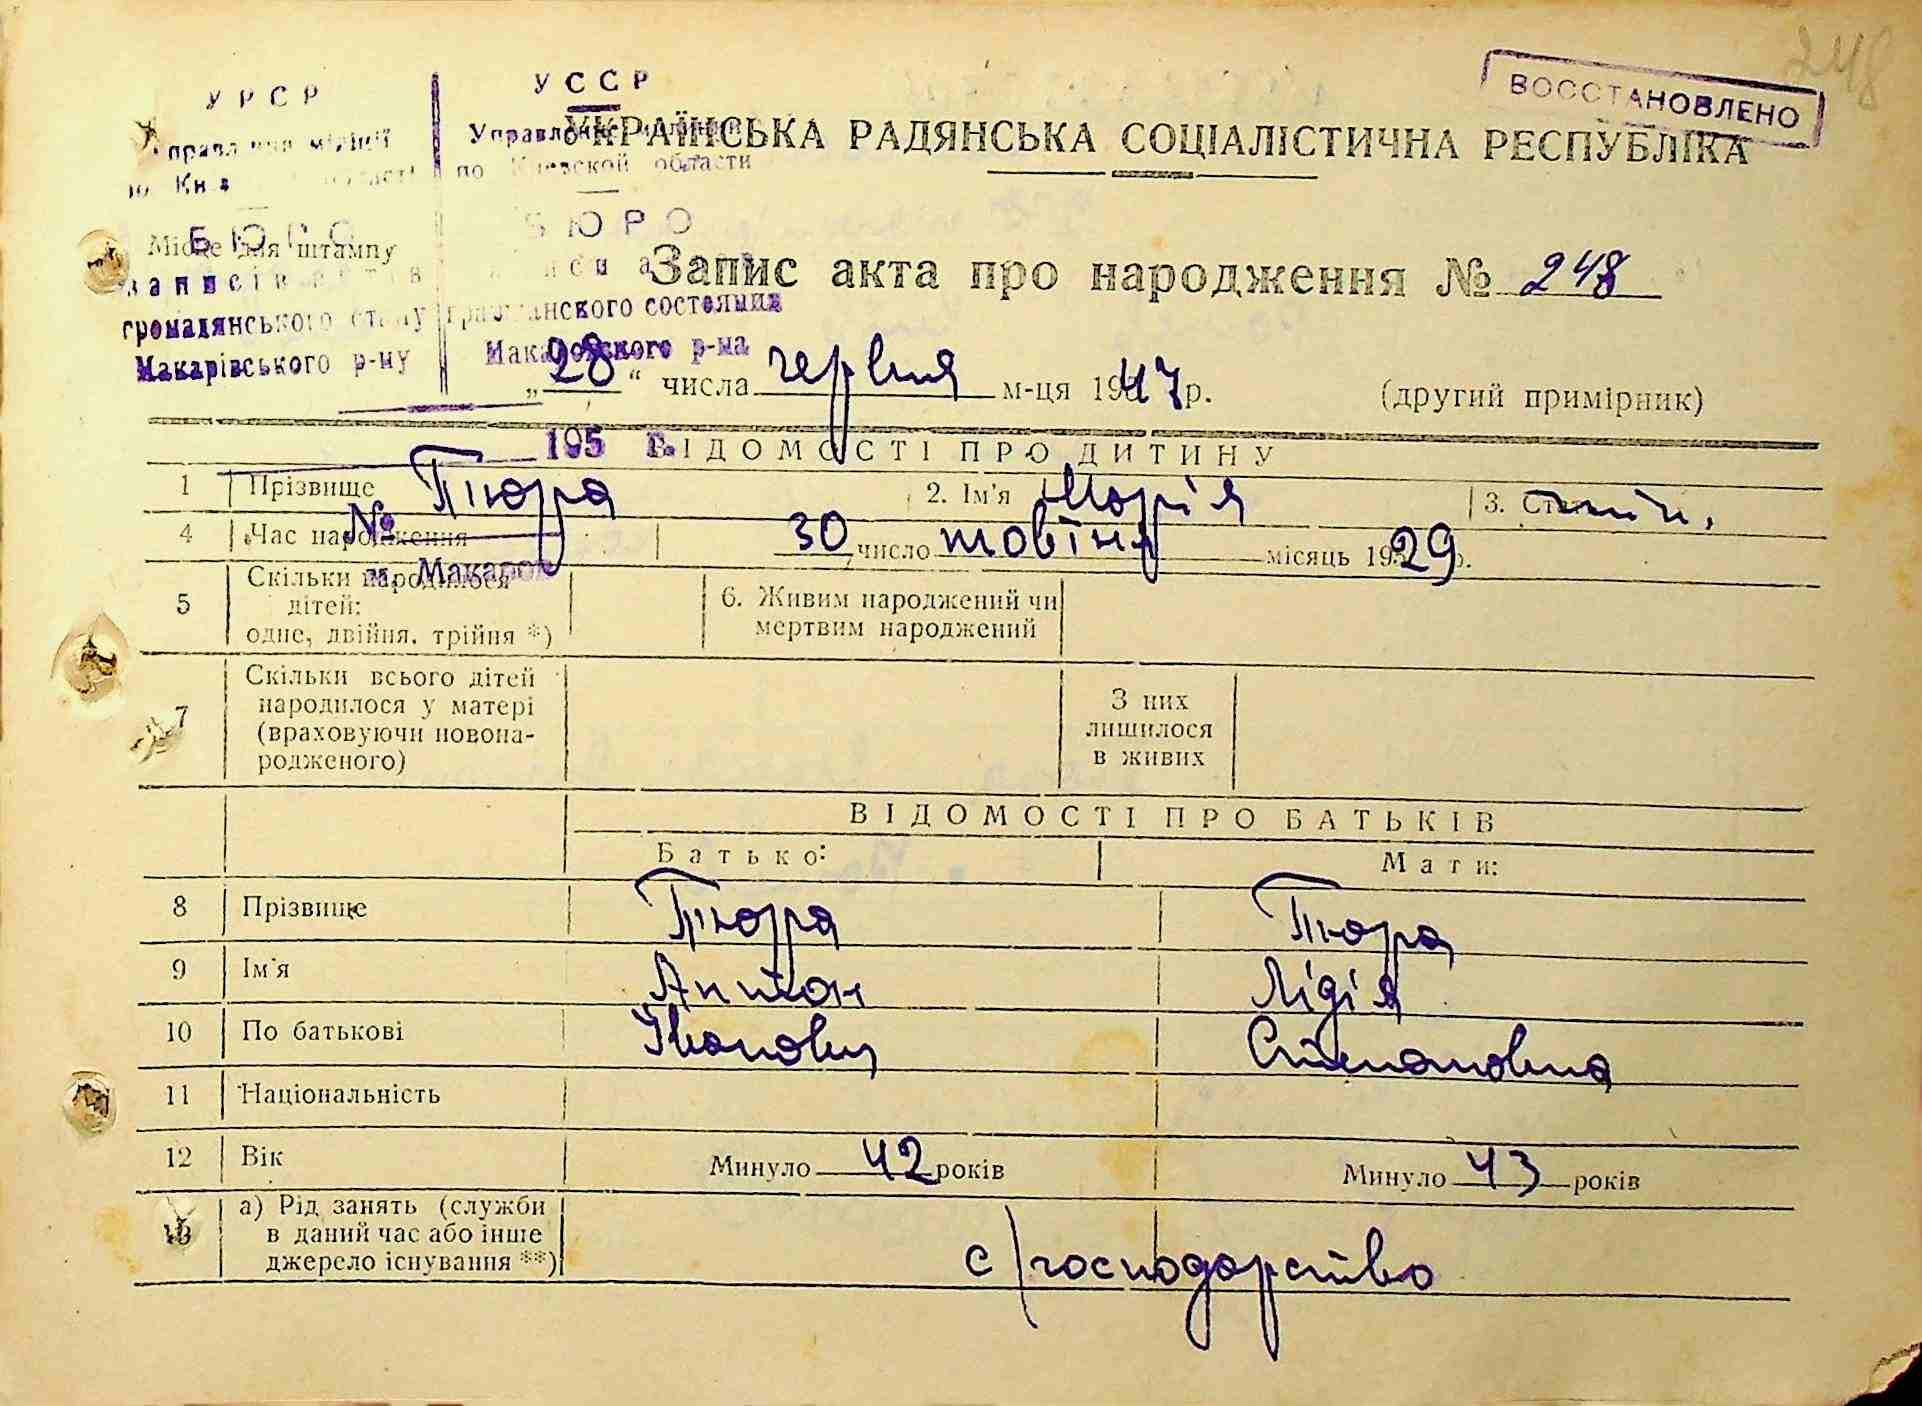 248
ВОССТАНОВЛЕНО
УРСР
УССР
Управління міліції
Управление
по Київ області
по Киевской области
УКРАЇНСЬКА РАДЯНСЬКА СОЦІАЛІСТИЧНА РЕСПУБЛІКА
БЮРО
БЮРО
Місце для штампу
записів актів
записи а
громадянського стану
гражданского состояния
Макарівського р-ну
Макаровского р-на
Запис акта про народження № 248
„28“ числа червня м-ця 1947 р. (другий примірник)
195 г.
ВІДОМОСТІ ПРО ДИТИНУ
1 Прізвище Тюра 2. Ім'я Марія 3. Стать жін.
№
4 Час народження 30 число жовтня місяць 1929 р.
м. Макаров
5 Скільки народилося
дітей:
одне, двійня, трійня *)
6. Живим народжений чи
мертвим народжений
7 Скільки всього дітей
народилося у матері
(враховуючи новона-
родженого)
З них
лишилося
в живих
ВІДОМОСТІ ПРО БАТЬКІВ
Батько: Мати:
8 Прізвище Тюра Тюра
9 Ім'я Антон Лідія
10 По батькові Іванович Степановна
11 Національність
12 Вік Минуло 42 років Минуло 43 років
13 а) Рід занять (служби
в даний час або інше
джерело існування **)
с/господарство